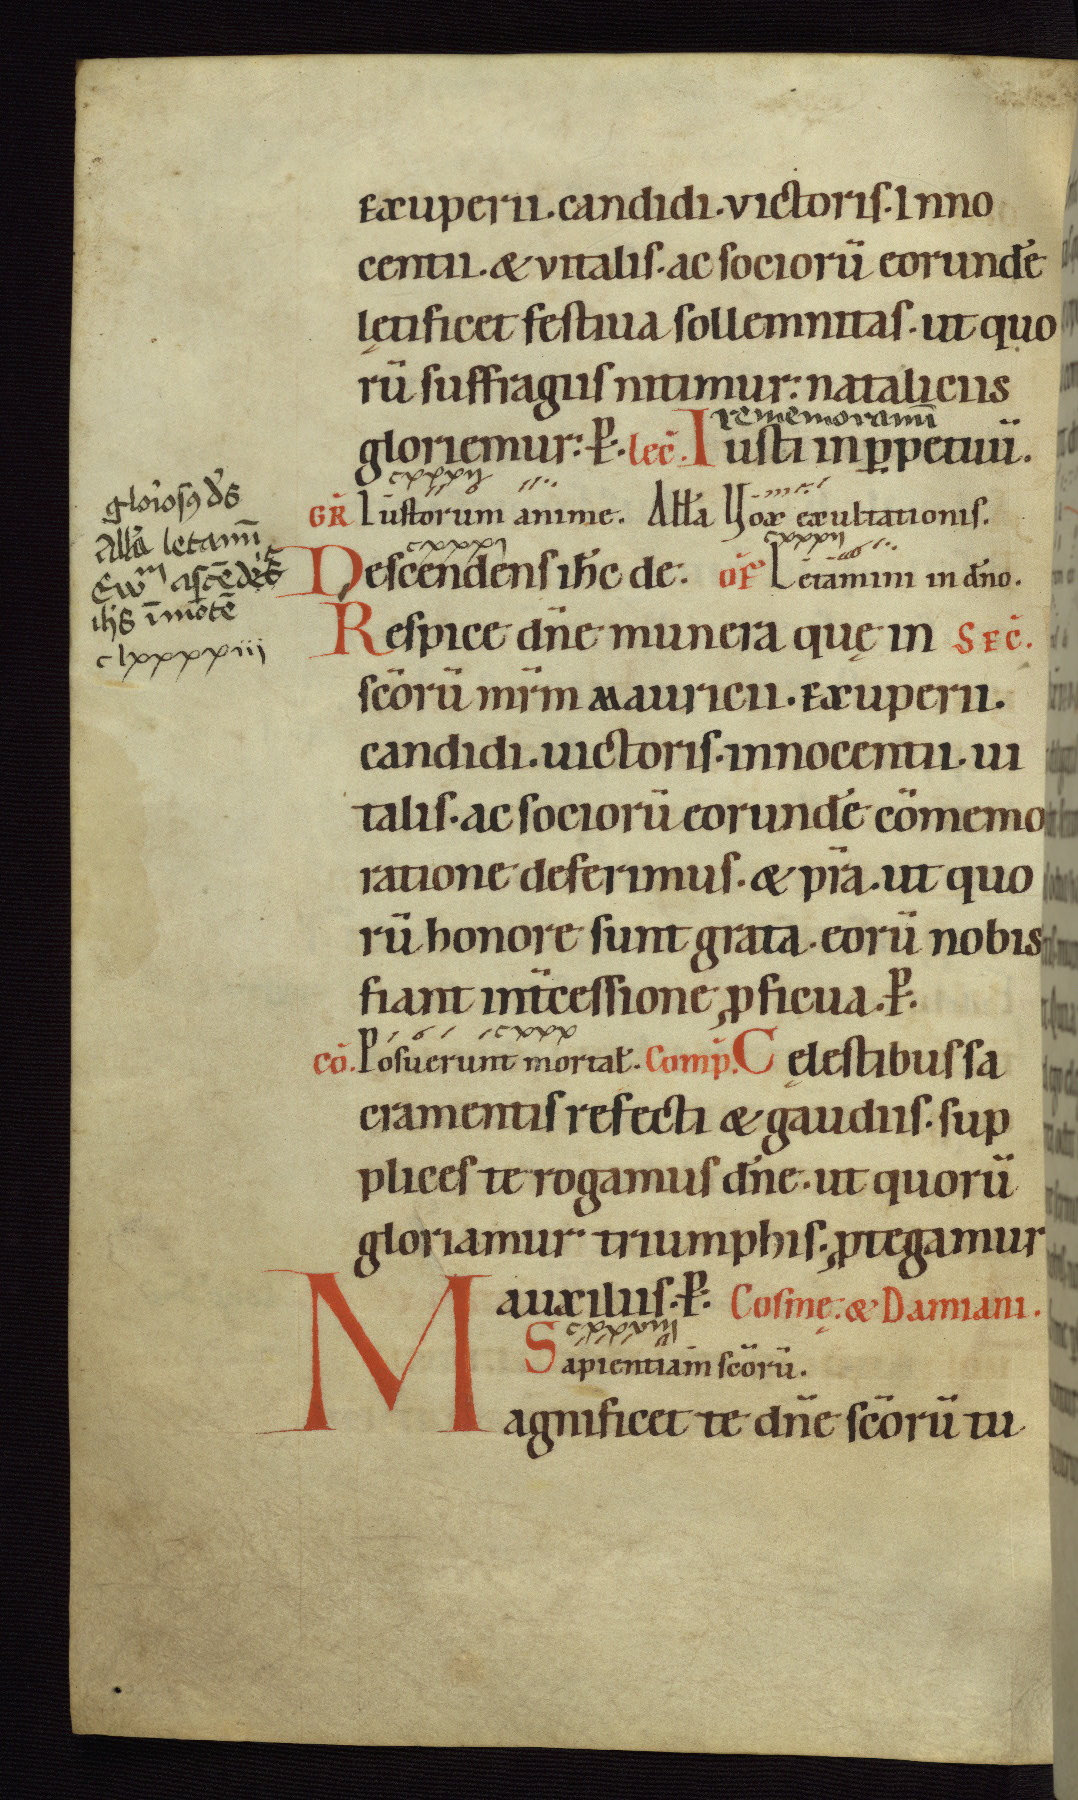 Exuperii. candidi. victoris. Inno
centii. & vitalis. ac socioru̅ eorunde̅
lętificet festiua sollemnitas. ut quo
ru̅ suffragiis nitimur: nataliciis
rememorami̅
gloriemur: P̅. lec̅. Iusti in p̲petuu̅.
GR̅ Iustorum anime. All̅a Uox exultationis.
Descendens ih̅c de. OF̅ Letamini in dn̅o.
Respice dn̅e munera quę in SEC̅.
sc̅oru̅ mr̅m Mauricii. Exuperii.
candidi. uictoris. innocentii. ui
talis. ac socioru̅ eorunde̅ co̅memo
ratione deferimus. & p̅ra. ut quo
ru̅ honore sunt grata. eoru̅ nobis
fiant int̅cessione ꝓficua. P̅.
CO̅. Posuerunt mortal̅. Comp̅. Cęlestibus sa
cramentis refecti & gaudiis. sup
plices te rogamus dn̅e. ut quoru̅
gloriamur triumphis. ꝓtegamur
auxiliis. P̅. Cosmę. & Damiani.
Sapientiam sc̅oru̅.
Magnificet te dn̅e sc̅oru̅ tu
gloriosꝰ d̅s
All̅a letami̅
asce̅de̅s
ih̅s i̅ mo̅te̅
clxxxxiii